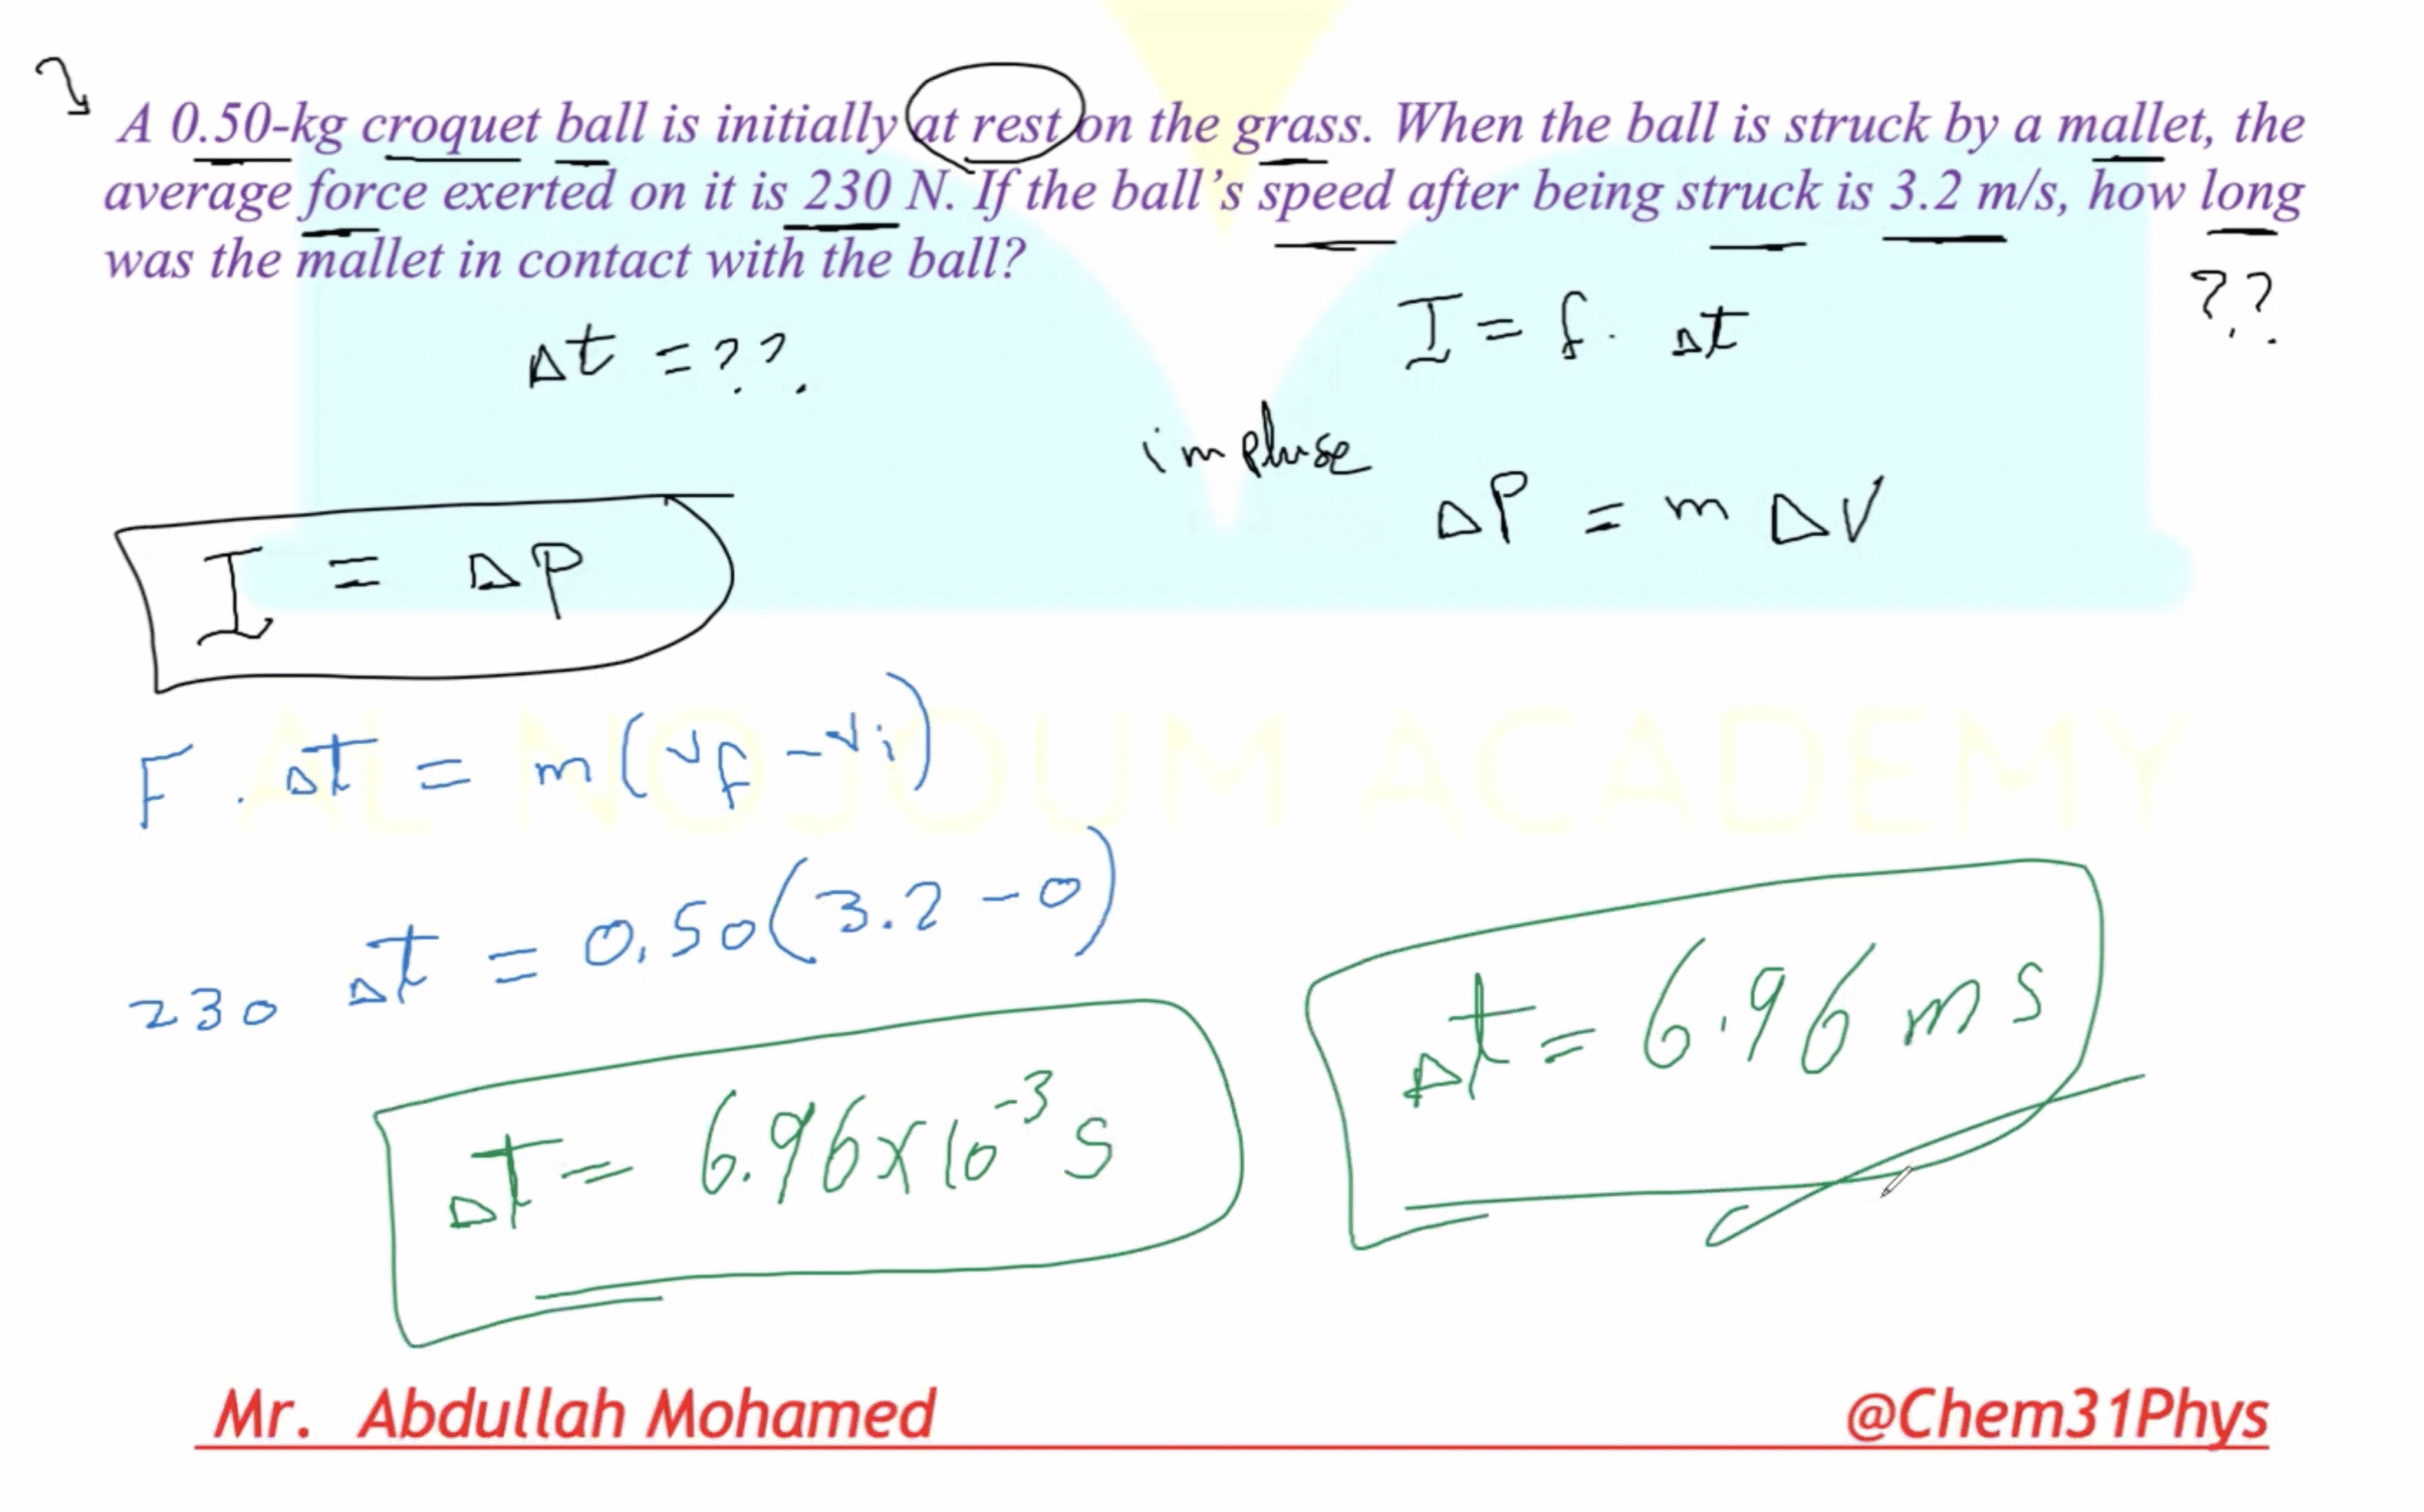 A 0.50-kg croquet ball is initially at rest on the grass. When the ball is struck by a mallet, the
average force exerted on it is 230 N. If the ball's speed after being struck is 3.2 m/s, how long
was the mallet in contact with the ball?
??
Δt = ??
I = f. Δt
impluse
ΔP = m ΔV
I = ΔP
F . Δt = m(vf - vi)
230 Δt = 0.50(3.2 - 0)
Δt = 6.96 x 10⁻³ s
Δt = 6.96 ms
AL NOJOUM ACADEMY
Mr. Abdullah Mohamed
@Chem31Phys